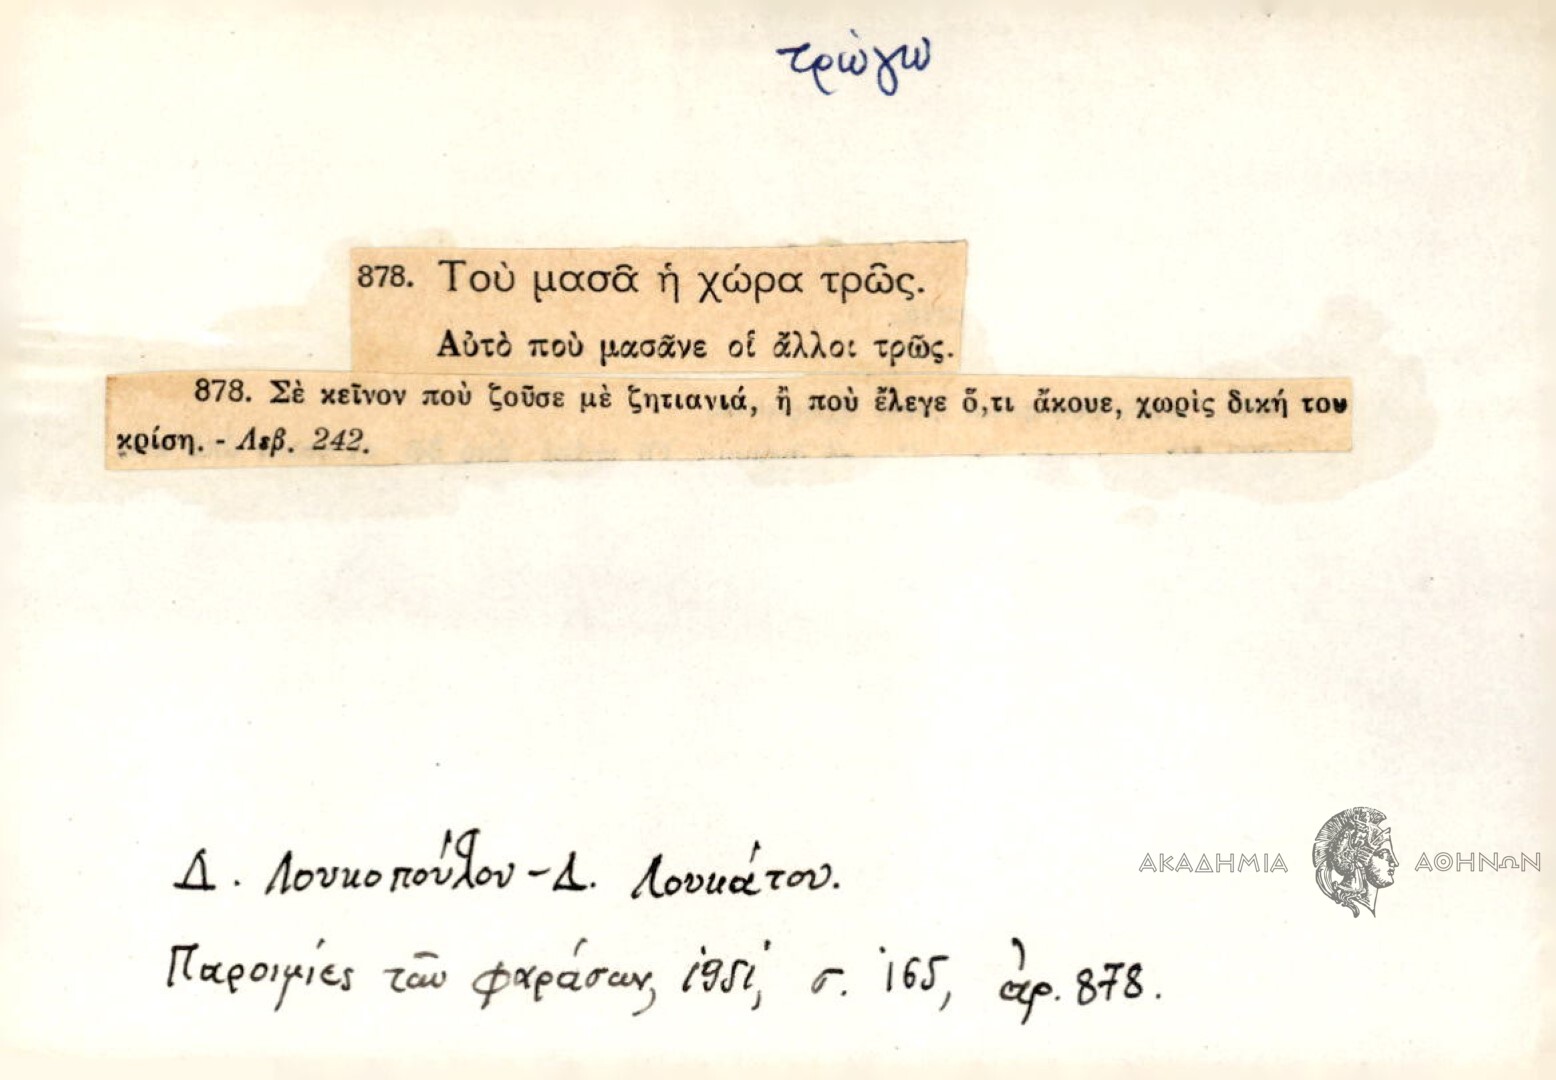 τρώγω
878. Τοὺ μασᾶ ἡ χώρα τρῶς.
Αὐτὸ ποὺ μασᾶνε οἱ ἄλλοι τρῶς.
878. Σὲ κεῖνον ποὺ ζοῦσε μὲ ζητιανιά, ἢ ποὺ ἔλεγε ὅ,τι ἄκουε, χωρὶς δική του
κρίση. - Λεβ. 242.
Δ. Λουκοπούλου - Δ. Λουκάτου.
ΑΚΑΔΗΜΙΑ ΑΘΗΝΩΝ
Παροιμίες τῶν Φαράσων, 1951, σ. 165, ἀρ. 878.